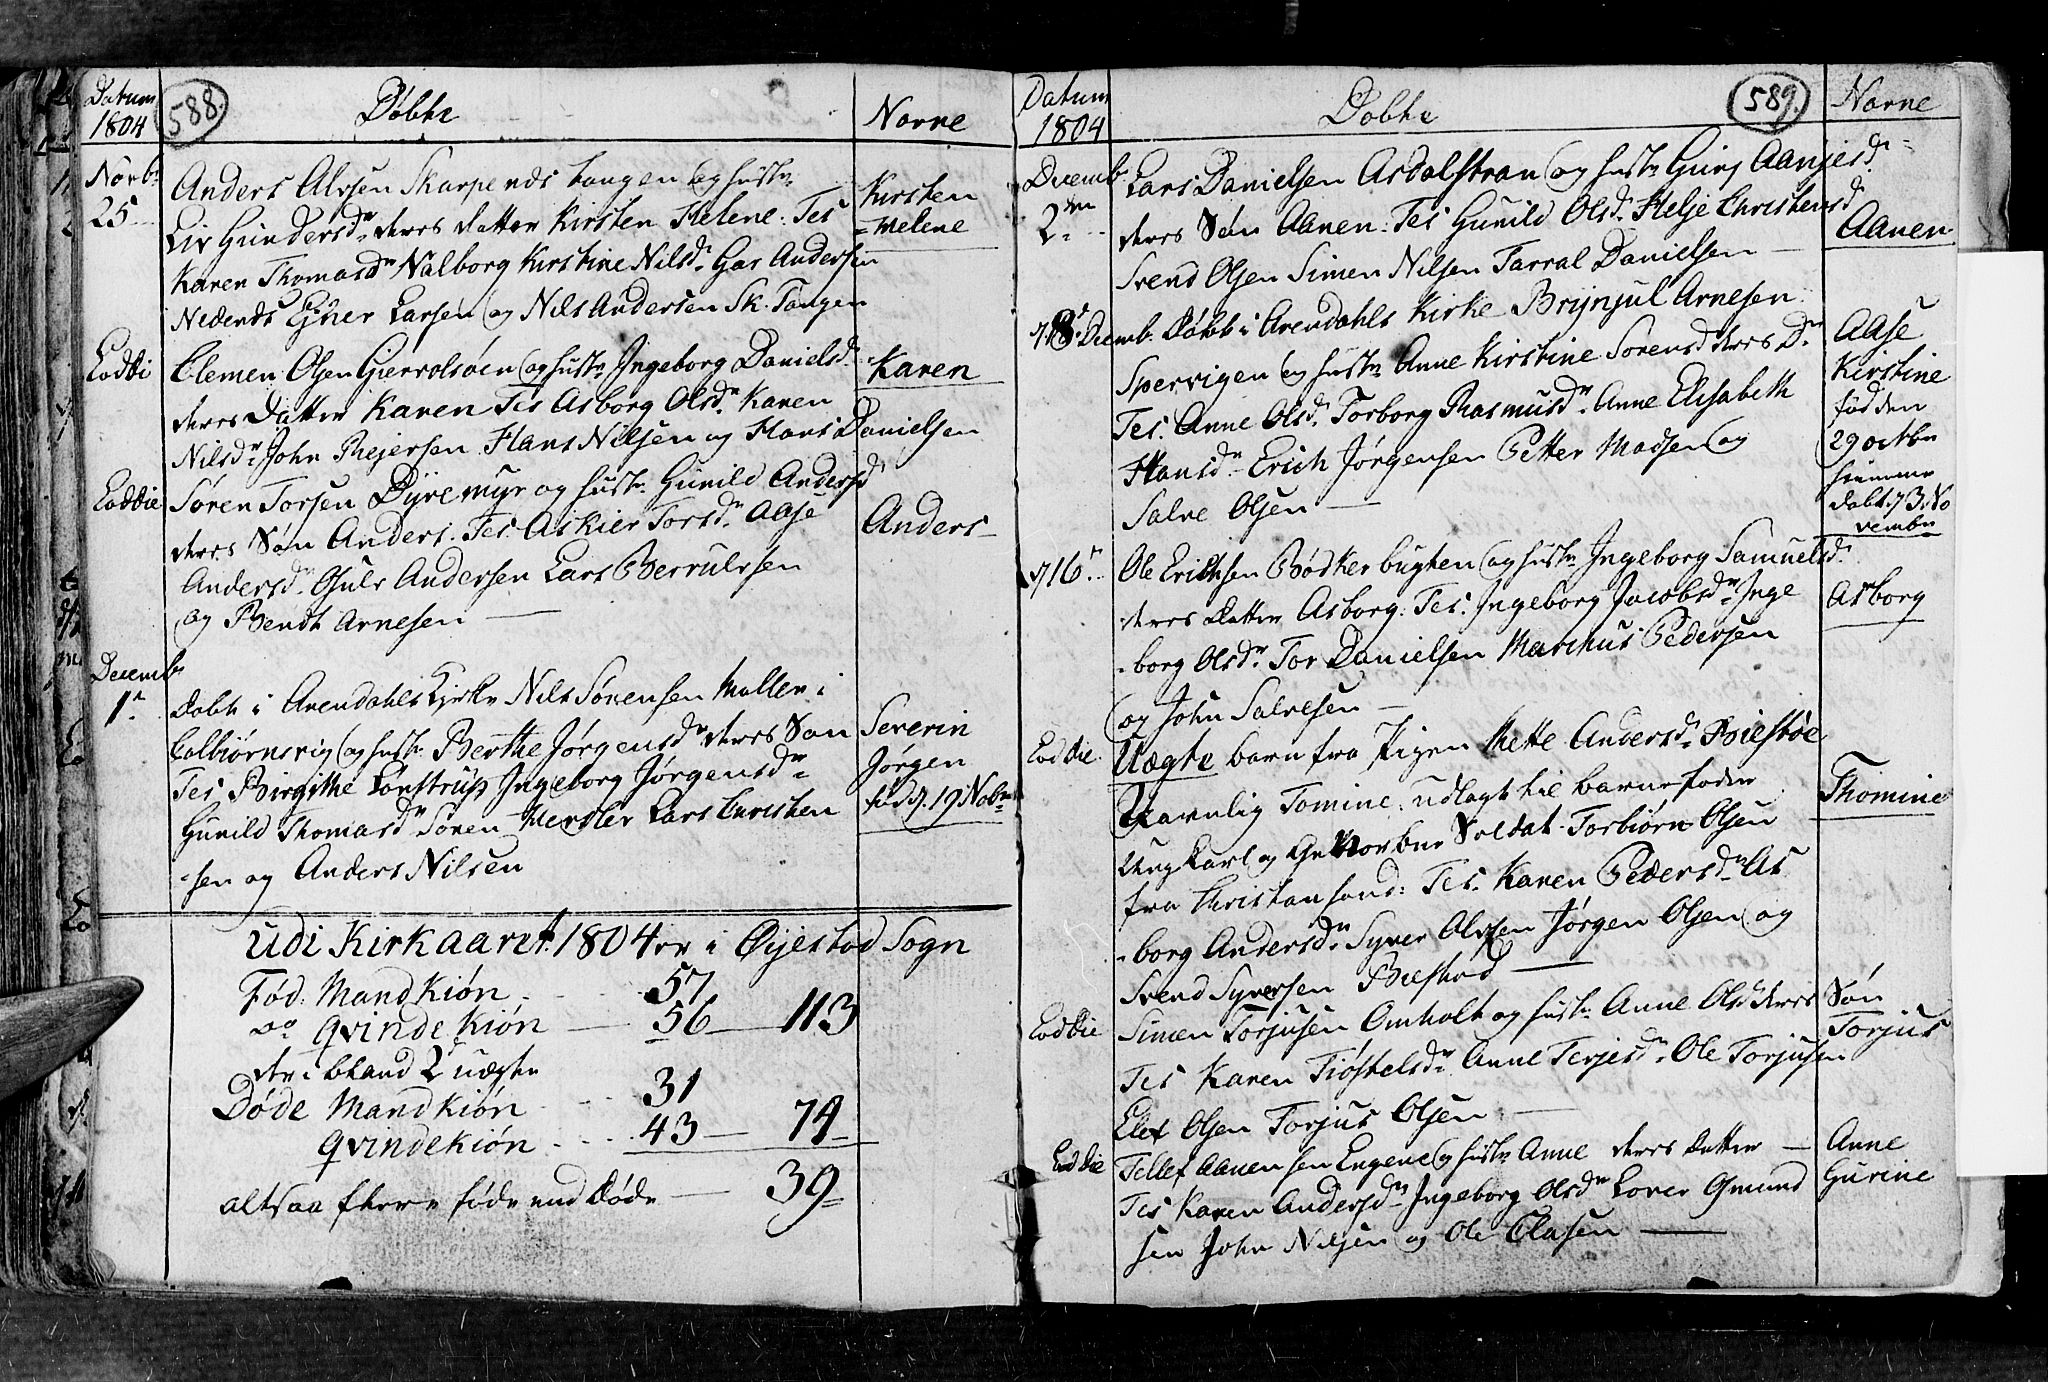 Datum
1804
588.
Døbte
Navne
Novbr
25
Anders Alvsen Skarpenæs tangen og hustr
Liv Gundersdr deres datter Kirsten Helene. Tes
Karen Thomasdr Nalborg Kirstine Nilsdr Gas Andersen
Nedenæs Ejner Larsen og Nils Andersen Sk. Tangen
Kirsten
Helene
Eoddi
Clemen Olsen Giervolsøen og hustr Ingeborg Danielsdr
deres Datter Karen Tes Asborg Olsdr Karen
Nilsdr John Rejersen Hans Nilsen og Hans Danielsen
Karen
Eoddie
Søren Torsen Dyremyr og hustr Gunild Andersd
deres Søn Anders. Tes. Askier Torsdr Aase
Andersdr Osuls Andersen Lars Berrulvsen
og Bendt Arnesen
Anders
Decembr
1
Døbt i Arendahls Kirke Nils Sørensen Møller i
Colbiørnsvig og hustr Berthe Jørgensdr deres Søn
Tes Birgithe Lønstrup Ingeborg Jørgensdr
Gunild Thomasdr Søren Herster Lars Christen
sen og Anders Nilsen
Severin
Jørgen
fød d. 19 Nobr
Udi Kirkaaret 1804 er i Øijestad Sogn
Fød: Mandkiøn 57
do Qvindekiøn 56 113
der iblandt 2 uægte
Døde Mandkiøn 31
Qvindekiøn 43 74
altsaa flere føde end døde 39
Datum
1804
Døbte
589.
Navne
Decemb
2
Lars Danielsen Asdalstran og hustr Guroj Aanjesdr
deres Søn Aanen. Tes Gunild Olsdr Helje Christensd
Svend Olsen Simen Nilsen Tarral Danielsen
Aanen
d 8 Decemb. Døbt i Arendahls Kirke Brijnjul Arnesen
Spervigen og hustr Anne Kirstine Sorensd deres Dr
Tes. Anne Olsdr Torborg Rasmusdr Anne Elisabeth
Hansdr Erich Jørgensen Petter Madsen og
Salve Olsen
Aase
Kirstine
fød den
29 octbr
hiemme
døbt d 3 No
vembr
d 16
Ole Erichsen Bødkerbugten og hustr Ingeborg Samuelsdr
deres Datter Asborg: Tes: Ingeborg Jacobsdr Inge
borg Olsdr Tor Danielsen Marchus Pedersen
og John Salvesen
Asborg
Eoddie
Uægte barn fra Pigen Mette Andersdr Biestøe
Navnlig Tomine: udlagt til barnefader
Ung Karl og Soldat Torbiørn Olsen
fra Christiansand: Tes. Karen Pedersdr As
borg Andersdr Syver Olvsen Jørgen Olsen og
Svend Syversen Biestød
Thomine
Eoddie
Simen Torjusen Omholt og hustr Anne Olsd deres Søn
Tes Karen Tiøstelsdr Anne Terjesdr Ole Torjusen
Elef Olsen Torjus Olsen
Torjus
Eoddie
Tellef Aanensen Engene og hustr Anne deres Datter
Tes Karen Andersdr Ingeborg Olsdr Lover Gmund
sen John Nilsen og Ole Clasen
Anne
Gurine